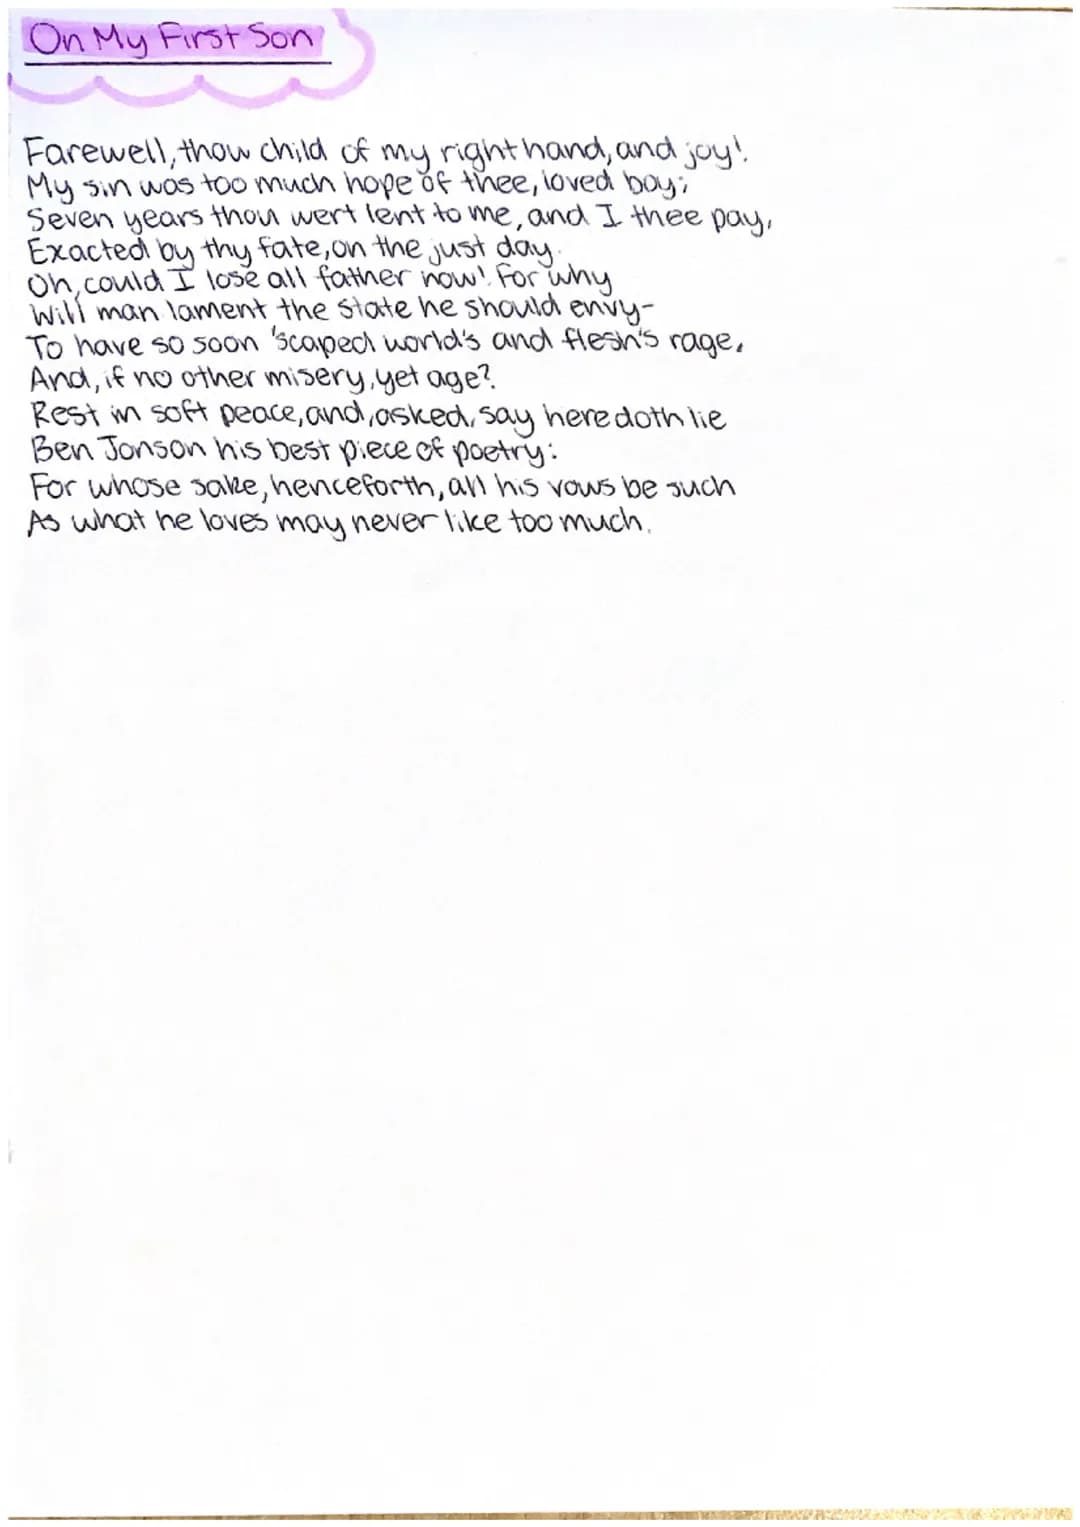 On My First Son
Farewell, thow child of my right hand, and joy!
My sin was too much hope of thee, loved boy;
Seven years thou wert lent to me, and I thee pay,
Exacted by thy fate, on the just day.
Oh, could I lose all father now! For why
Will man lament the state he should envy-
To have so soon 'scaped world's and flesh's rage,
And, if no other misery, yet age?
Rest in soft peace, and, asked, say here doth lie
Ben Jonson his best piece of poetry:
For whose sake, henceforth, all his vows be such
As what he loves may never like too much.